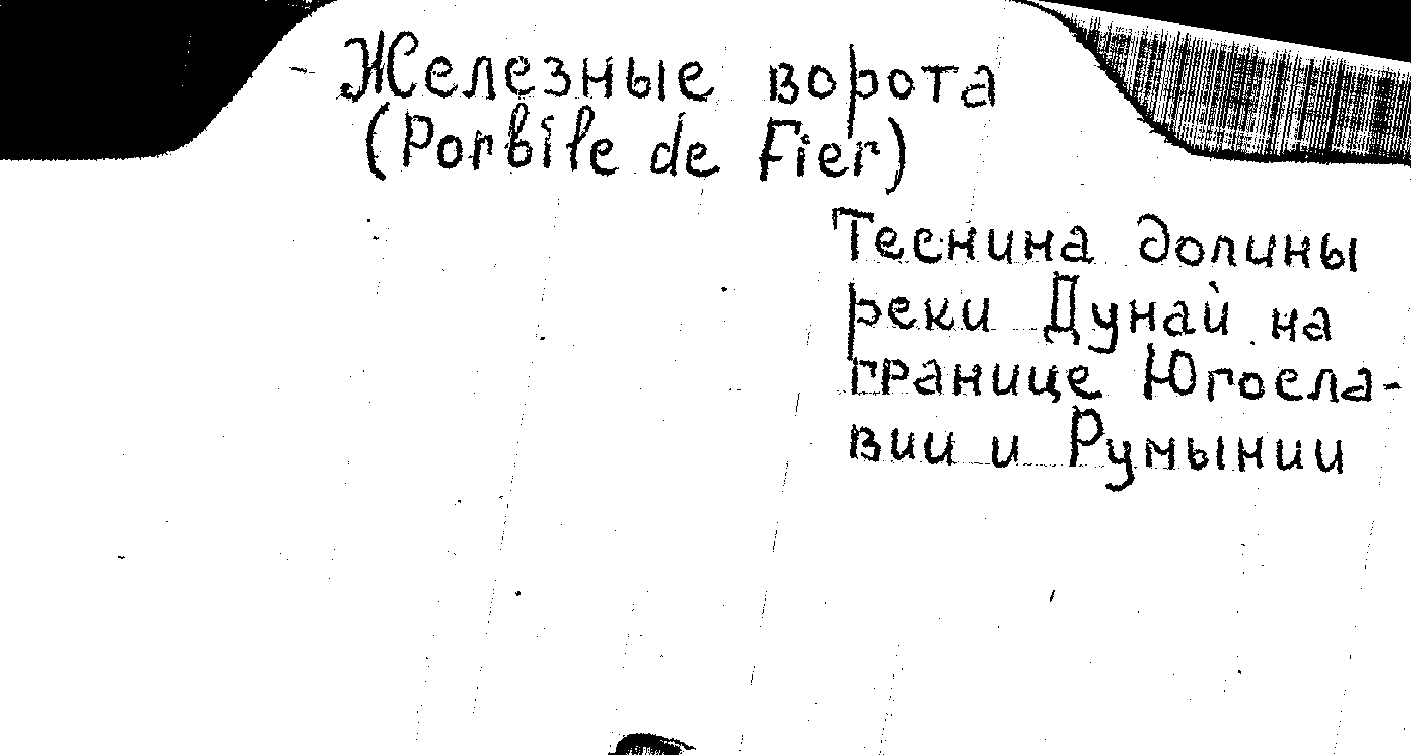 Железные ворота
(Porbile de Fier)
Теснина долины
реки Дунай на
границе Югосла-
вии и Румынии